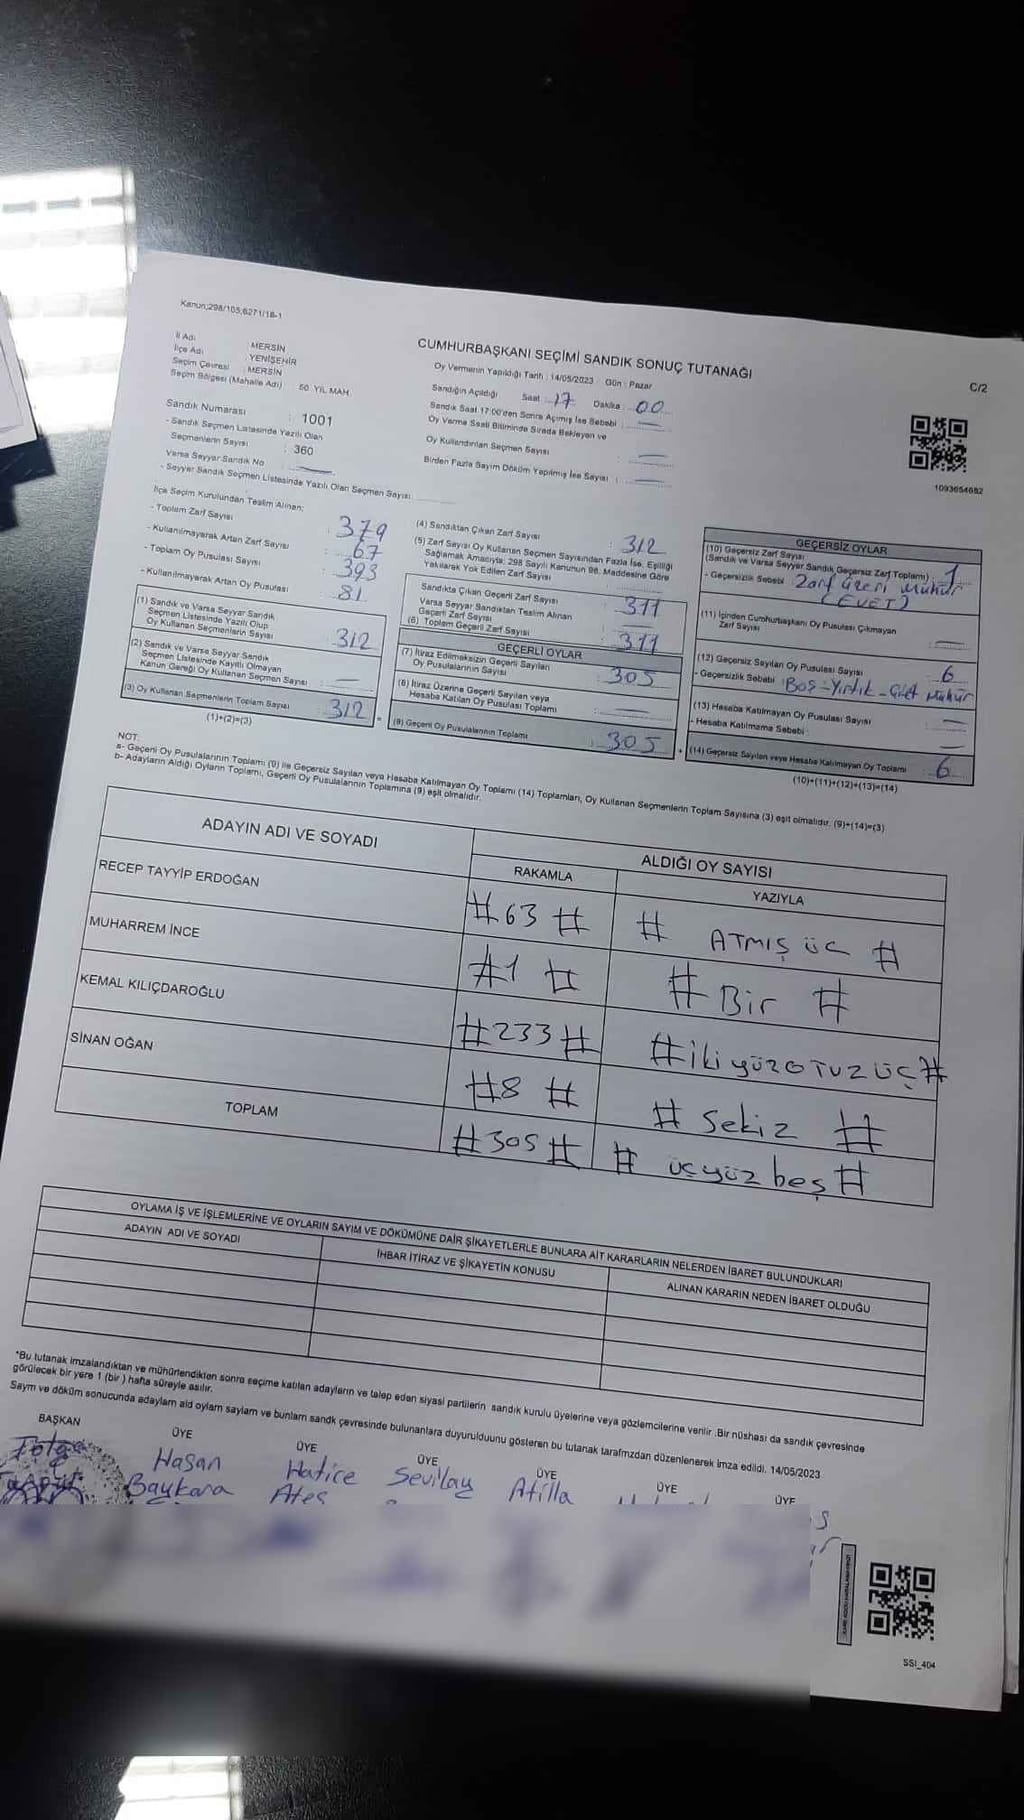 Kanun;298/105,6271/18-1
CUMHURBAŞKANI SEÇİMİ SANDIK SONUÇ TUTANAĞI
C/2
İl Adı : MERSİN
İlçe Adı : YENİŞEHİR
Seçim Çevresi : MERSİN
Seçim Bölgesi (Mahalle Adı) 50. YIL MAH.
Oy Vermenin Yapıldığı Tarih : 14/05/2023 Gün : Pazar
Sandığın Açıldığı Saat 17 Dakika 00
Sandık Saat 17:00'den Sonra Açılmış İse Sebebi : —
Oy Verme Saati Bitiminde Sırada Bekleyen ve
Oy Kullandırılan Seçmen Sayısı : —
Birden Fazla Sayım Döküm Yapılmış İse Sayısı : —
1093654682
Sandık Numarası : 1001
- Sandık Seçmen Listesinde Yazılı Olan
Seçmenlerin Sayısı : 360
Varsa Seyyar Sandık No : —
- Seyyar Sandık Seçmen Listesinde Yazılı Olan Seçmen Sayısı
İlçe Seçim Kurulundan Teslim Alınan;
- Toplam Zarf Sayısı : 379
- Kullanılmayarak Artan Zarf Sayısı : 67
- Toplam Oy Pusulası Sayısı : 393
- Kullanılmayarak Artan Oy Pusulası : 81
(1) Sandık ve Varsa Seyyar Sandık
Seçmen Listesinde Yazılı Olup
Oy Kullanan Seçmenlerin Sayısı : 312
(2) Sandık ve Varsa Seyyar Sandık
Seçmen Listesinde Kayıtlı Olmayan
Kanun Gereği Oy Kullanan Seçmen Sayısı : —
(3) Oy Kullanan Seçmenlerin Toplam Sayısı : 312
(1)+(2)=(3)
(4) Sandıktan Çıkan Zarf Sayısı : 312
(5) Zarf Sayısı Oy Kullanan Seçmen Sayısından Fazla İse, Eşitliği
Sağlamak Amacıyla, 298 Sayılı Kanunun 98. Maddesine Göre
Yakılarak Yok Edilen Zarf Sayısı
Sandıkta Çıkan Geçerli Zarf Sayısı : 311
Varsa Seyyar Sandıktan Teslim Alınan
Geçerli Zarf Sayısı
(6) Toplam Geçerli Zarf Sayısı : 311
GEÇERLİ OYLAR
(7) İtiraz Edilmeksizin Geçerli Sayılan
Oy Pusulalarının Sayısı : 305
(8) İtiraz Üzerine Geçerli Sayılan veya
Hesaba Katılan Oy Pusulası Toplamı : —
(9) Geçerli Oy Pusulalarının Toplamı : 305
GEÇERSİZ OYLAR
(10) Geçersiz Zarf Sayısı
(Sandık ve Varsa Seyyar Sandık Geçersiz Zarf Toplamı) : 1
- Geçersizlik Sebebi : Zarf Üzeri Mühür
(EVET)
(11) İçinden Cumhurbaşkanı Oy Pusulası Çıkmayan
Zarf Sayısı : —
(12) Geçersiz Sayılan Oy Pusulası Sayısı : 6
- Geçersizlik Sebebi : Boş-Yırtık-Çift Mühür
(13) Hesaba Katılmayan Oy Pusulası Sayısı : —
- Hesaba Katılmama Sebebi : —
(14) Geçersiz Sayılan veya Hesaba Katılmayan Oy Toplamı : 6
(10)+(11)+(12)+(13)=(14)
NOT:
a- Geçerli Oy Pusulalarının Toplamı (9) ile Geçersiz Sayılan veya Hesaba Katılmayan Oy Toplamı (14) Toplamları, Oy Kullanan Seçmenlerin Toplam Sayısına (3) eşit olmalıdır. (9)+(14)=(3)
b- Adayların Aldığı Oyların Toplamı, Geçerli Oy Pusulalarının Toplamına (9) eşit olmalıdır.
ADAYIN ADI VE SOYADI
ALDIĞI OY SAYISI
RAKAMLA YAZIYLA
RECEP TAYYİP ERDOĞAN #63 # # ATMIŞ ÜC #
MUHARREM İNCE #1 # # Bir #
KEMAL KILIÇDAROĞLU #233# #ikiyüzOTUZÜÇ#
SİNAN OĞAN #8 # # Sekiz #
TOPLAM #305# # üçyüz beş #
OYLAMA İŞ VE İŞLEMLERİNE VE OYLARIN SAYIM VE DÖKÜMÜNE DAİR ŞİKAYETLERLE BUNLARA AİT KARARLARIN NELERDEN İBARET BULUNDUKLARI
ADAYIN ADI VE SOYADI İHBAR İTİRAZ VE ŞİKAYETİN KONUSU ALINAN KARARIN NEDEN İBARET OLDUĞU
*Bu tutanak imzalandıktan ve mühürlendikten sonra seçime katılan adayların ve talep eden siyasi partilerin sandık kurulu üyelerine veya gözlemcilerine verilir .Bir nüshası da sandık çevresinde
görülecek bir yere 1 (bir ) hafta süreyle asılır.
Sayım ve döküm sonucunda adayların ald oyların sayları ve bunların sandk çevresinde bulunanlara duyurulduunu gösteren bu tutanak tarafmzdan düzenlenerek imza edildi. 14/05/2023
BAŞKAN ÜYE ÜYE ÜYE ÜYE ÜYE ÜYE
Tolga Hasan Hatice Sevilay Atilla
Baykara Ateş
SSI_404